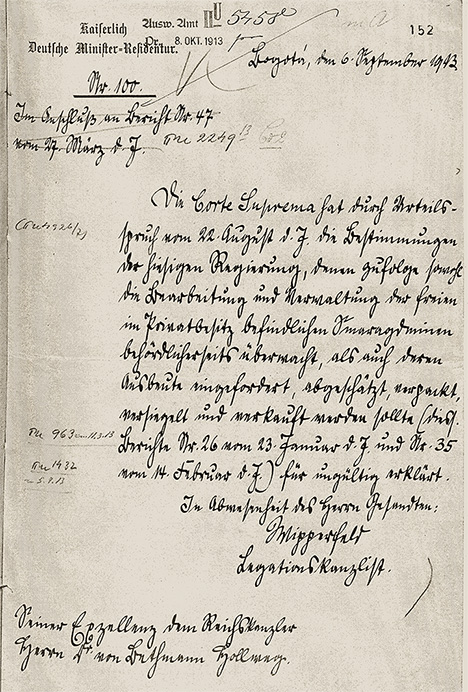 Kaiserlich
Deutsche Minister-Residentur.
Ausw. Amt II U 5458
Pr. 8. OKT. 1913
152
Bogotá, den 6. September 1913
Nr. 100.
Im Anschluß an Bericht Nr. 47
vom 27. März d. J.
2249 13
Die Corte Suprema hat durch Urteils-
spruch vom 22. August d. J. die Bestimmungen
der hiesigen Regierung, denen zufolge sowohl
die Bearbeitung und Verwaltung der freien
im Privatbesitz befindlichen Smaragdminen
behördlicherseits überwacht, als auch deren
Ausbeute eingefordert, abgeschätzt, verpackt,
versiegelt und verkauft werden sollte (dies.
Berichte Nr. 26 vom 23. Januar d. J. und Nr. 35
vom 14. Februar d. J.) für ungültig erklärt.
963
1432
In Abwesenheit des Herrn Gesandten:
Wipperfeld
Legationskanzlist.
Seiner Exzellenz dem Reichskanzler
Herrn Dr. von Bethmann Hollweg.